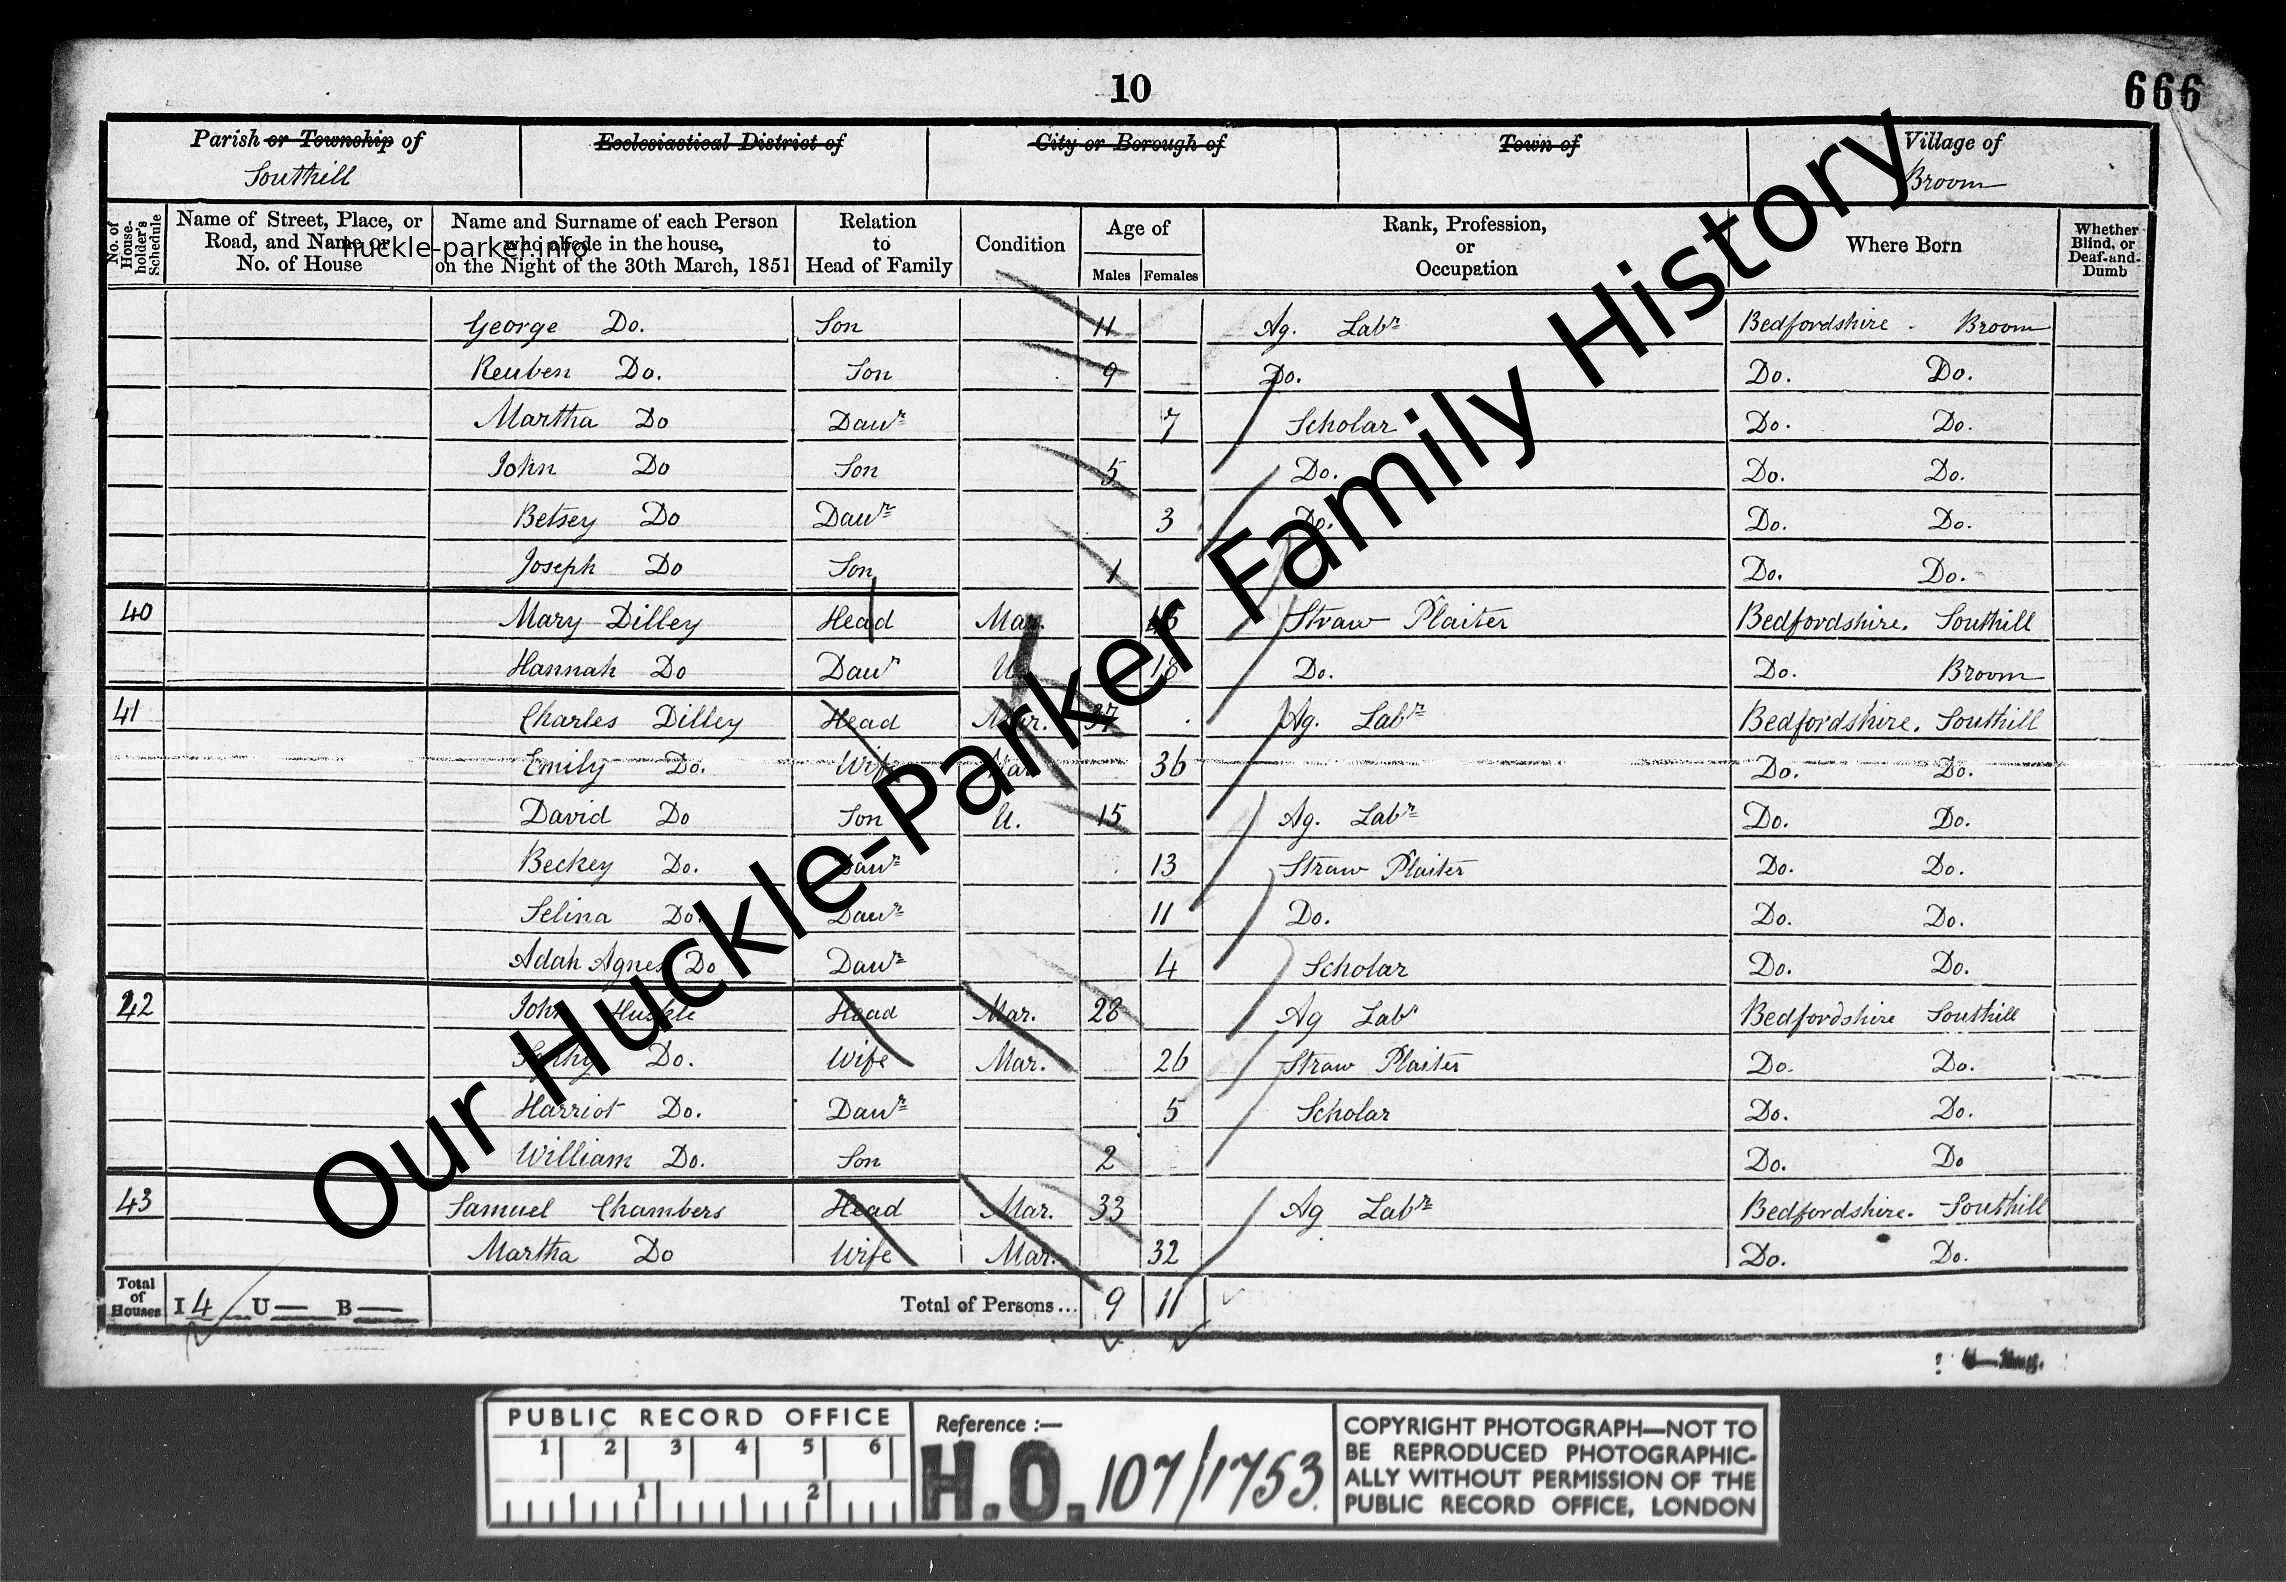 10
666
Parish or Township of
Southill
Ecclesiastical District of
City or Borough of
Town of
Village of
Broom
No. of House-holder's Schedule
Name of Street, Place, or Road, and Name or No. of House
Name and Surname of each Person who abode in the house, on the Night of the 30th March, 1851
Relation to Head of Family
Condition
Age of
Males
Females
Rank, Profession, or Occupation
Where Born
Whether Blind, or Deaf-and-Dumb
huckle-parker.info
George Do. Son 11 Ag. Labr Bedfordshire . Broom
Reuben Do. Son 9 Do. Do. Do.
Martha Do Daur 7 Scholar Do. Do.
John Do Son 5 Do. Do. Do.
Betsey Do Daur 3 Do. Do. Do.
Joseph Do Son 1 Do. Do.
40 Mary Dilley Head Mar. Straw Plaiter Bedfordshire. Southill
Hannah Do Daur U 18 Do. Do. Broom
41 Charles Dilley Head Mar. 37 Ag. Labr Bedfordshire. Southill
Emily Do. Wife Mar 36 Do. Do.
David Do Son U. 15 Ag. Labr Do. Do.
Beckey Do. Daur 13 Straw Plaiter Do. Do.
Selina Do. Daur 11 Do. Do. Do.
Adah Agnes Do Daur 4 Scholar Do. Do.
42 John Huckle Head Mar. 28 Ag Labr Bedfordshire Southill
Do. Wife Mar. 26 Straw Plaiter Do. Do.
Harriot Do. Daur 5 Scholar Do. Do.
William Do. Son 2 Do. Do
43 Samuel Chambers Head Mar. 33 Ag Labr Bedfordshire. Southill
Martha Do Wife Mar. 32 Do. Do.
Total of Houses I 4 U — B —
Total of Persons... 9 11
Our Huckle-Parker Family History
PUBLIC RECORD OFFICE
1 2 3 4 5 6
1 2
Reference :—
H.O. 107/1753
COPYRIGHT PHOTOGRAPH—NOT TO
BE REPRODUCED PHOTOGRAPHIC-
ALLY WITHOUT PERMISSION OF THE
PUBLIC RECORD OFFICE, LONDON